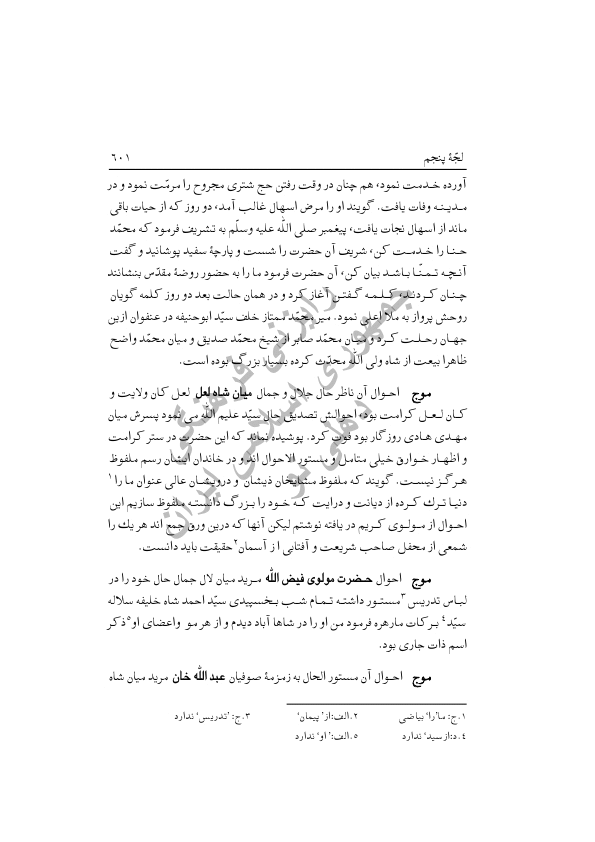 لجّهٔ پنجم ۶۰۱
آورده خدمت نمود، هم چنان در وقت رفتن حج شتری مجروح را مرمّت نمود و در
مدینه وفات یافت. گویند او را مرض اسهال غالب آمد، دو روز که از حیات باقی
ماند از اسهال نجات یافت، پیغمبر صلی الله علیه وسلّم به تشریف فرمود که محمّد
حنا را خدمت کن، شریف آن حضرت را شست و پارچهٔ سفید پوشانید و گفت
آنچه تمنّا باشد بیان کن، آن حضرت فرمود ما را به حضور روضهٔ مقدّس بنشانند
چنان کردند، کلمه گفتن آغاز کرد و در همان حالت بعد دو روز کلمه گویان
روحش پرواز به ملا اعلی نمود. میر محمّد ممتاز خلف سیّد ابوحنیفه در عنفوان ازین
جهان رحلت کرد و میان محمّد صابر از شیخ محمّد صدیق و میان محمّد واضح
ظاهرا بیعت از شاه ولی الله محدّث کرده بسیار بزرگ بوده است.
موج احوال آن ناظر حال جلال و جمال میان شاه لعل لعل کان ولایت و
کان لعل کرامت بود، احوالش تصدیق حال سیّد علیم الله می نمود پسرش میان
مهدی هادی روزگار بود فوت کرد. پوشیده نماند که این حضرت در ستر کرامت
و اظهار خوارق خیلی متامل و مستور الاحوال اند و در خاندان ایشان رسم ملفوظ
هرگز نیست. گویند که ملفوظ مشایخان ذیشان و درویشان عالی عنوان ما را۱
دنیا ترك کرده از دیانت و درایت که خود را بزرگ دانسته ملفوظ سازیم این
احوال از مولوی کریم در یافته نوشتم لیکن آنها که درین ورق جمع اند هر یك را
شمعی از محفل صاحب شریعت و آفتابی از آسمان۲ حقیقت باید دانست.
موج احوال حضرت مولوی فیض الله مرید میان لال جمال حال خود را در
لباس تدریس۳ مستور داشته تمام شب بخسپیدی سیّد احمد شاه خلیفه سلاله
سیّد۴ برکات مارهره فرمود من او را در شاها آباد دیدم و از هر مو واعضای او۵ ذکر
اسم ذات جاری بود.
موج احوال آن مستور الحال به زمزمهٔ صوفیان عبد الله خان مرید میان شاه
۱.ج: ما'را' بیاضی ۲.الف:از' پیمان' ۳.ج: 'تدریس' ندارد
۴.د:از سید' ندارد ۵.الف:' او' ندارد